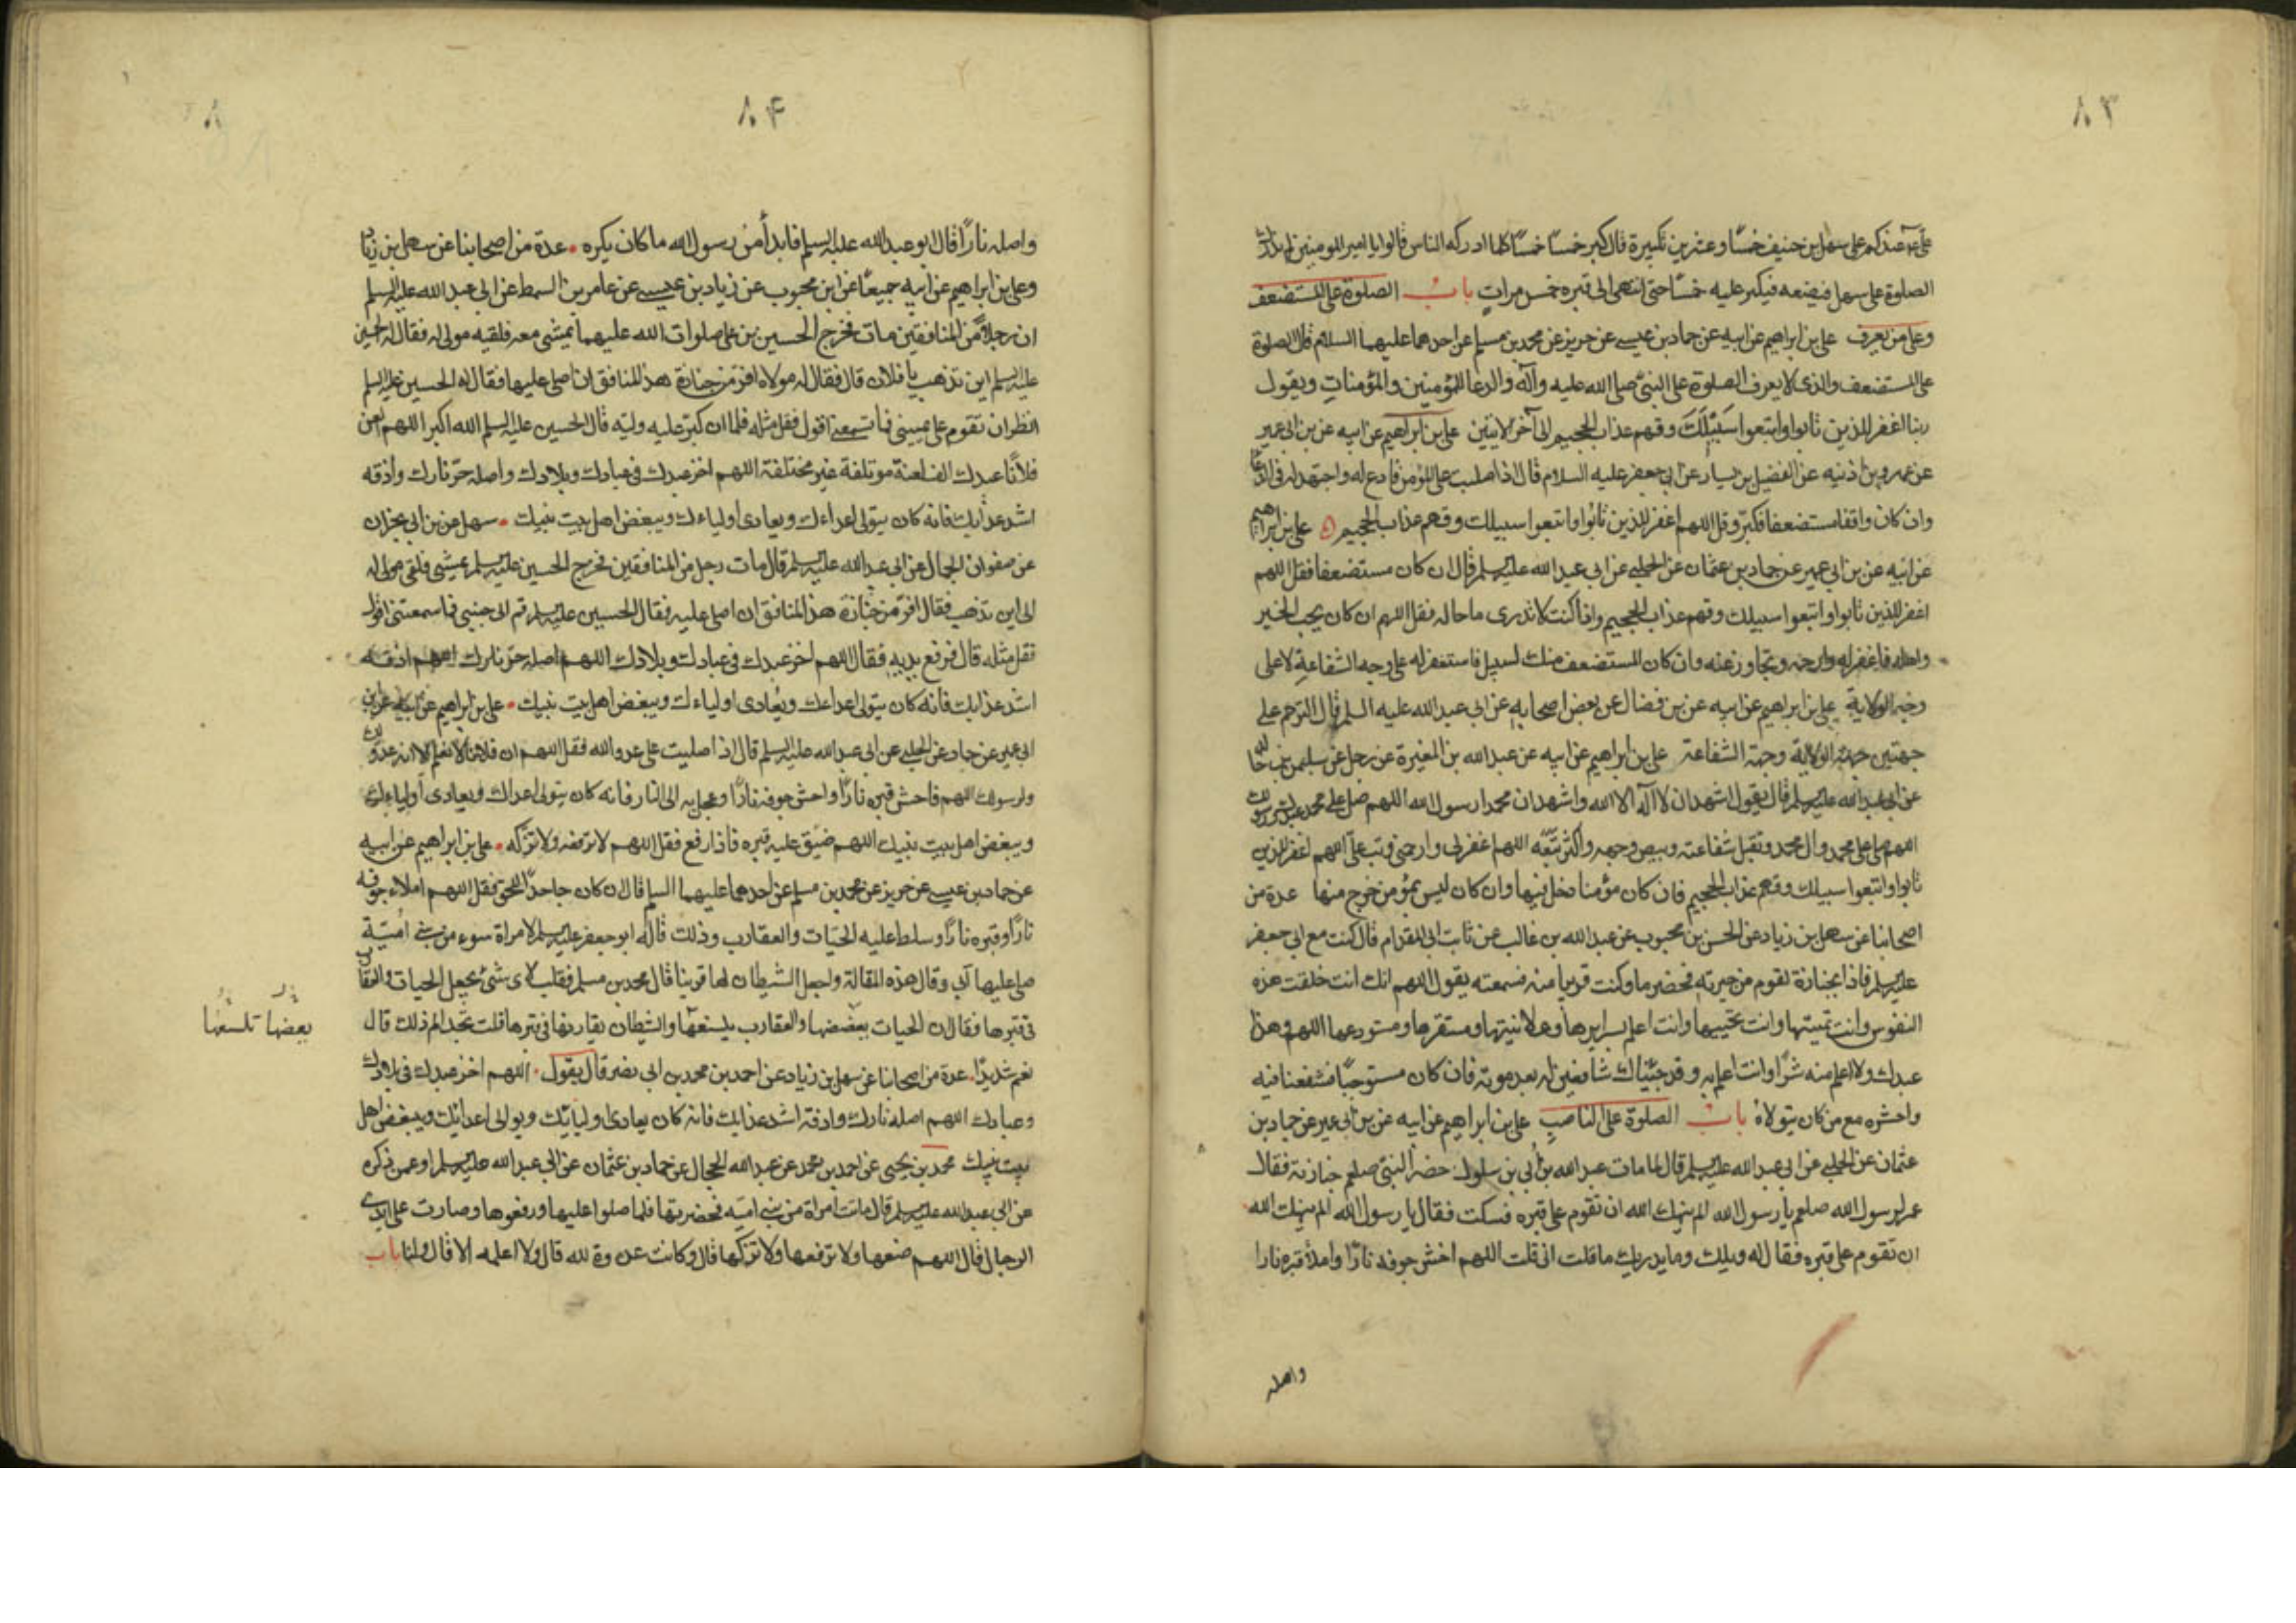 ٨٠٣
علي عندكم علي سهل بن حنيف خمسًا وعشرين تكبيرة قال كبر خمسًا خمسًا كلما ادركه الناس قالوا يا امير المومنين لم ندرك
الصلوة على سهل فيضعه فيكبر عليه خمسًا حتى انتهى الى قبره خمس مرات باب الصلوة على المستضعف
وعلى من يعرف علي بن ابراهيم عن ابيه عن حماد بن عيسى عن حريز عن محمد بن مسلم عن احدهما عليهما السلام قال الصلوة
على المستضعف والذي لا يعرف الصلوة على النبي صلى الله عليه وآله والدعا للمؤمنين والمؤمنات ويقول
ربنا اغفر للذين تابوا واتبعوا سبيلك وقهم عذاب الجحيم الى آخر الايتين علي بن ابراهيم عن ابيه عن بن ابي عمير
عن عمر بن اذنيه عن الفضيل بن يسار عن ابي جعفر عليه السلام قال اذا صليت على المؤمن فادع له واجتهد له في الدعا
وان كان واقفا مستضعفا فكبر وقل اللهم اغفر للذين تابوا واتبعوا سبيلك وقهم عذاب الجحيم علي بن ابراهيم
عن ابيه عن بن ابي عمير عن حماد بن عثمان عن الحلبي عن ابي عبد الله عليه السلم قال ان كان مستضعفا فقل اللهم
اغفر للذين تابوا واتبعوا سبيلك وقهم عذاب الجحيم واذا كنت لا تدري ما حاله فقل اللهم ان كان يحب الخير
واهله فاغفر له وارحمه وتجاوز عنه وان كان المستضعف منك لسبيل فاستغفر له على وجه الشفاعة لا على
وجه الولاية علي بن ابراهيم عن ابيه عن بن فضال عن بعض اصحابه عن ابي عبد الله عليه السلم قال الترحم على
جهتين جهة الولاية وجهة الشفاعة علي بن ابراهيم عن ابيه عن عبد الله بن المغيرة عن رجل عن سليمن بن خالد
عن ابي عبد الله عليه السلم قال يقول اشهد ان لا اله الا الله واشهد ان محمدا رسول الله اللهم صل على محمد عبدك ورسولك
اللهم صل على محمد وال محمد وتقبل شفاعته وبيض وجهه واكثر تبعه اللهم اغفر لي وارحمني وتب علي اللهم اغفر للذين
تابوا واتبعوا سبيلك وقهم عذاب الجحيم فان كان مؤمنا دخل فيها وان كان ليس بمؤمن خرج منها عدة من
اصحابنا عن سهل بن زياد عن الحسن بن محبوب عن عبد الله بن غالب عن ثابت ابي المقدام قال كنت مع ابي جعفر
عليه السلم فاذا بجنازة لقوم من جيرته فحضرها وكنت قريبا منه فسمعته يقول اللهم انك انت خلقت هذه
النفوس وانت تميتها وانت تحييها وانت اعلم بسرايرها وعلانيتها ومستقرها ومستودعها اللهم وهذا
عبدك ولا اعلم منه شرًا وانت اعلم به وقد جئناك شافعين له بعد موته فان كان مستوجبًا فشفعنا فيه
واحشره مع من كان يتولاه باب الصلوة على الناصب علي بن ابراهيم عن ابيه عن بن ابي عمير عن حماد بن
عثمان عن الحلبي عن ابي عبد الله عليه السلم قال لما مات عبد الله بن أبي بن سلول حضر النبي صلعم جنازته فقال
عمر لرسول الله صلعم يا رسول الله الم ينهك الله ان تقوم على قبره فسكت فقال يا رسول الله الم ينهك الله
ان تقوم على قبره فقال له ويلك وما يدريك ما قلت اني قلت اللهم احش جوفه نارًا واملأ قبره نارا
واصله
٨٠۴
واصله نارًا قال ابو عبد الله عليه السلم فابدأ من رسول الله ما كان يكره عدة من اصحابنا عن سهل بن زياد
وعلي بن ابراهيم عن ابيه جميعًا عن ابن محبوب عن زياد بن عيسى عن عامر بن السمط عن ابي عبد الله عليه السلم
ان رجلا من المنافقين مات فخرج الحسين بن علي صلوات الله عليهما يمشي معه فلقيه مولى له فقال له الحسين
عليه السلم اين تذهب يا فلان قال فقال له مولاه افر من جنازة هذا المنافق ان اصلي عليها فقال له الحسين عليه السلم
انظر ان تقوم على يميني فما تسمعني اقول فقل مثله فلما ان كبر عليه وليه قال الحسين عليه السلم الله اكبر اللهم العن
فلانًا عبدك الف لعنة موتلفة غير مختلفة اللهم اخز عبدك في عبادك وبلادك واصله حر نارك واذقه
اشد عذابك فانه كان يتولى اعداءك ويعادي اولياءك ويبغض اهل بيت نبيك سهل عن بن ابي نجران
عن صفوان الجمال عن ابي عبد الله عليه السلم قال مات رجل من المنافقين فخرج الحسين عليه السلم يمشي فلقى مولى له
الى اين تذهب فقال افر من جنازة هذا المنافق ان اصلي عليه فقال الحسين عليه السلم قم الى جنبي فما سمعتني اقول
فقل مثله قال فرفع يديه فقال اللهم اخز عبدك في عبادك وبلادك اللهم اصله حر نارك اللهم اذقه
اشد عذابك فانه كان يتولى اعداءك ويعادي اولياءك ويبغض اهل بيت نبيك علي بن ابراهيم عن ابيه عن ابن
ابي عمير عن حماد عن الحلبي عن ابي عبد الله عليه السلم قال اذا صليت على عدو الله فقل اللهم ان فلانا لا نعلم الا انه عدو لك
ولرسولك اللهم فاحش قبره نارًا واحش جوفه نارًا وعجل به الى النار فانه كان يتولى اعداك ويعادي اولياءك
ويبغض اهل بيت نبيك اللهم ضيق عليه قبره فاذا رفع فقل اللهم لا ترفعه ولا تزكه علي بن ابراهيم عن ابيه
عن حماد بن عيسى عن حريز عن محمد بن مسلم عن احدهما عليهما السلم قال ان كان جاحدًا للحق فقل اللهم املاء جوفه
نارًا وقبره نارًا وسلط عليه الحيات والعقارب وذلك قاله ابو جعفر عليه السلم لامرأة سوء من بني أمية
صلى عليها ابي وقال هذه المقالة واجعل الشيطان لها قرينا قال محمد بن مسلم فقلت لاي شئ يجعل الحيات والعقارب
في قبرها فقال ان الحيات يعضضها والعقارب يلسعها والشيطان يقارنها في قبرها قلت تجد الم ذلك قال
نعم شديدًا عدة من اصحابنا عن سهل بن زياد عن احمد بن محمد بن ابي نصر قال يقول اللهم اخز عبدك في بلادك
وعبادك اللهم اصله نارك واذقه اشد عذابك فانه كان يعادي اوليائك ويوالي اعدائك ويبغض اهل
بيت نبيك محمد بن يحيى عن احمد بن محمد عن عبد الله الحجال عن حماد بن عثمان عن ابي عبد الله عليه السلم او عمن ذكره
عن ابي عبد الله عليه السلم قال ماتت امراة من بني امية فحضرتها فلما صلوا عليها ورفعوها وصارت على ايدي
الرجال قال اللهم ضعها ولا ترفعها ولا تزكها قال وكانت عدوة لله قال ولا اعلمه الا قال ولنا باب
يعضها تلسعها